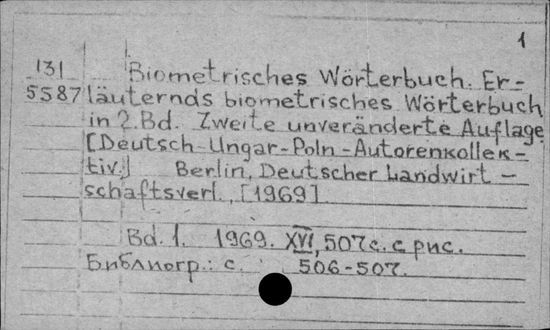 1
131 Biometrisches Wörterbuch. Er-
5587 läuternds biometrisches Wörterbuch
in 2. Bd. Zweite unveränderte Auflage
[Deutsch-Ungar-Poln-Autorenkollek-
tiv.] Berlin, Deutscher Landwirt-
schaftsverl., [1969]
Bd. 1. 1969. XVI, 507 с. с рис.
Библиогр.: с. 506-507.